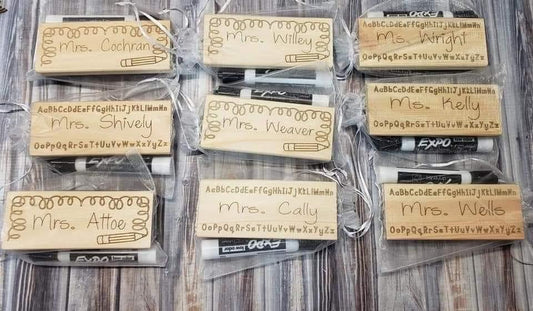 Mrs. Cochran
Mrs. Willey
AaBbCcDdEeFfGgHhIiJjKkLlMmNn
Ms. Wright
OoPpQqRrSsTtUuVvWwXxYyZz
AaBbCcDdEeFfGgHhIiJjKkLlMmNn
Mrs. Shively
OoPpQqRrSsTtUuVvWwXxYyZz
EXPO
Mrs. Weaver
AaBbCcDdEeFfGgHhIiJjKkLlMmNn
Ms. Kelly
OoPpQqRrSsTtUuVvWwXxYyZz
EXPO
Mrs. Attoe
EXPO
AaBbCcDdEeFfGgHhIiJjKkLlMmNn
Mrs. Cally
OoPpQqRrSsTtUuVvWwXxYyZz
EXPO
AaBbCcDdEeFfGgHhIiJjKkLlMmNn
Mrs. Wells
OoPpQqRrSsTtUuVvWwXxYyZz